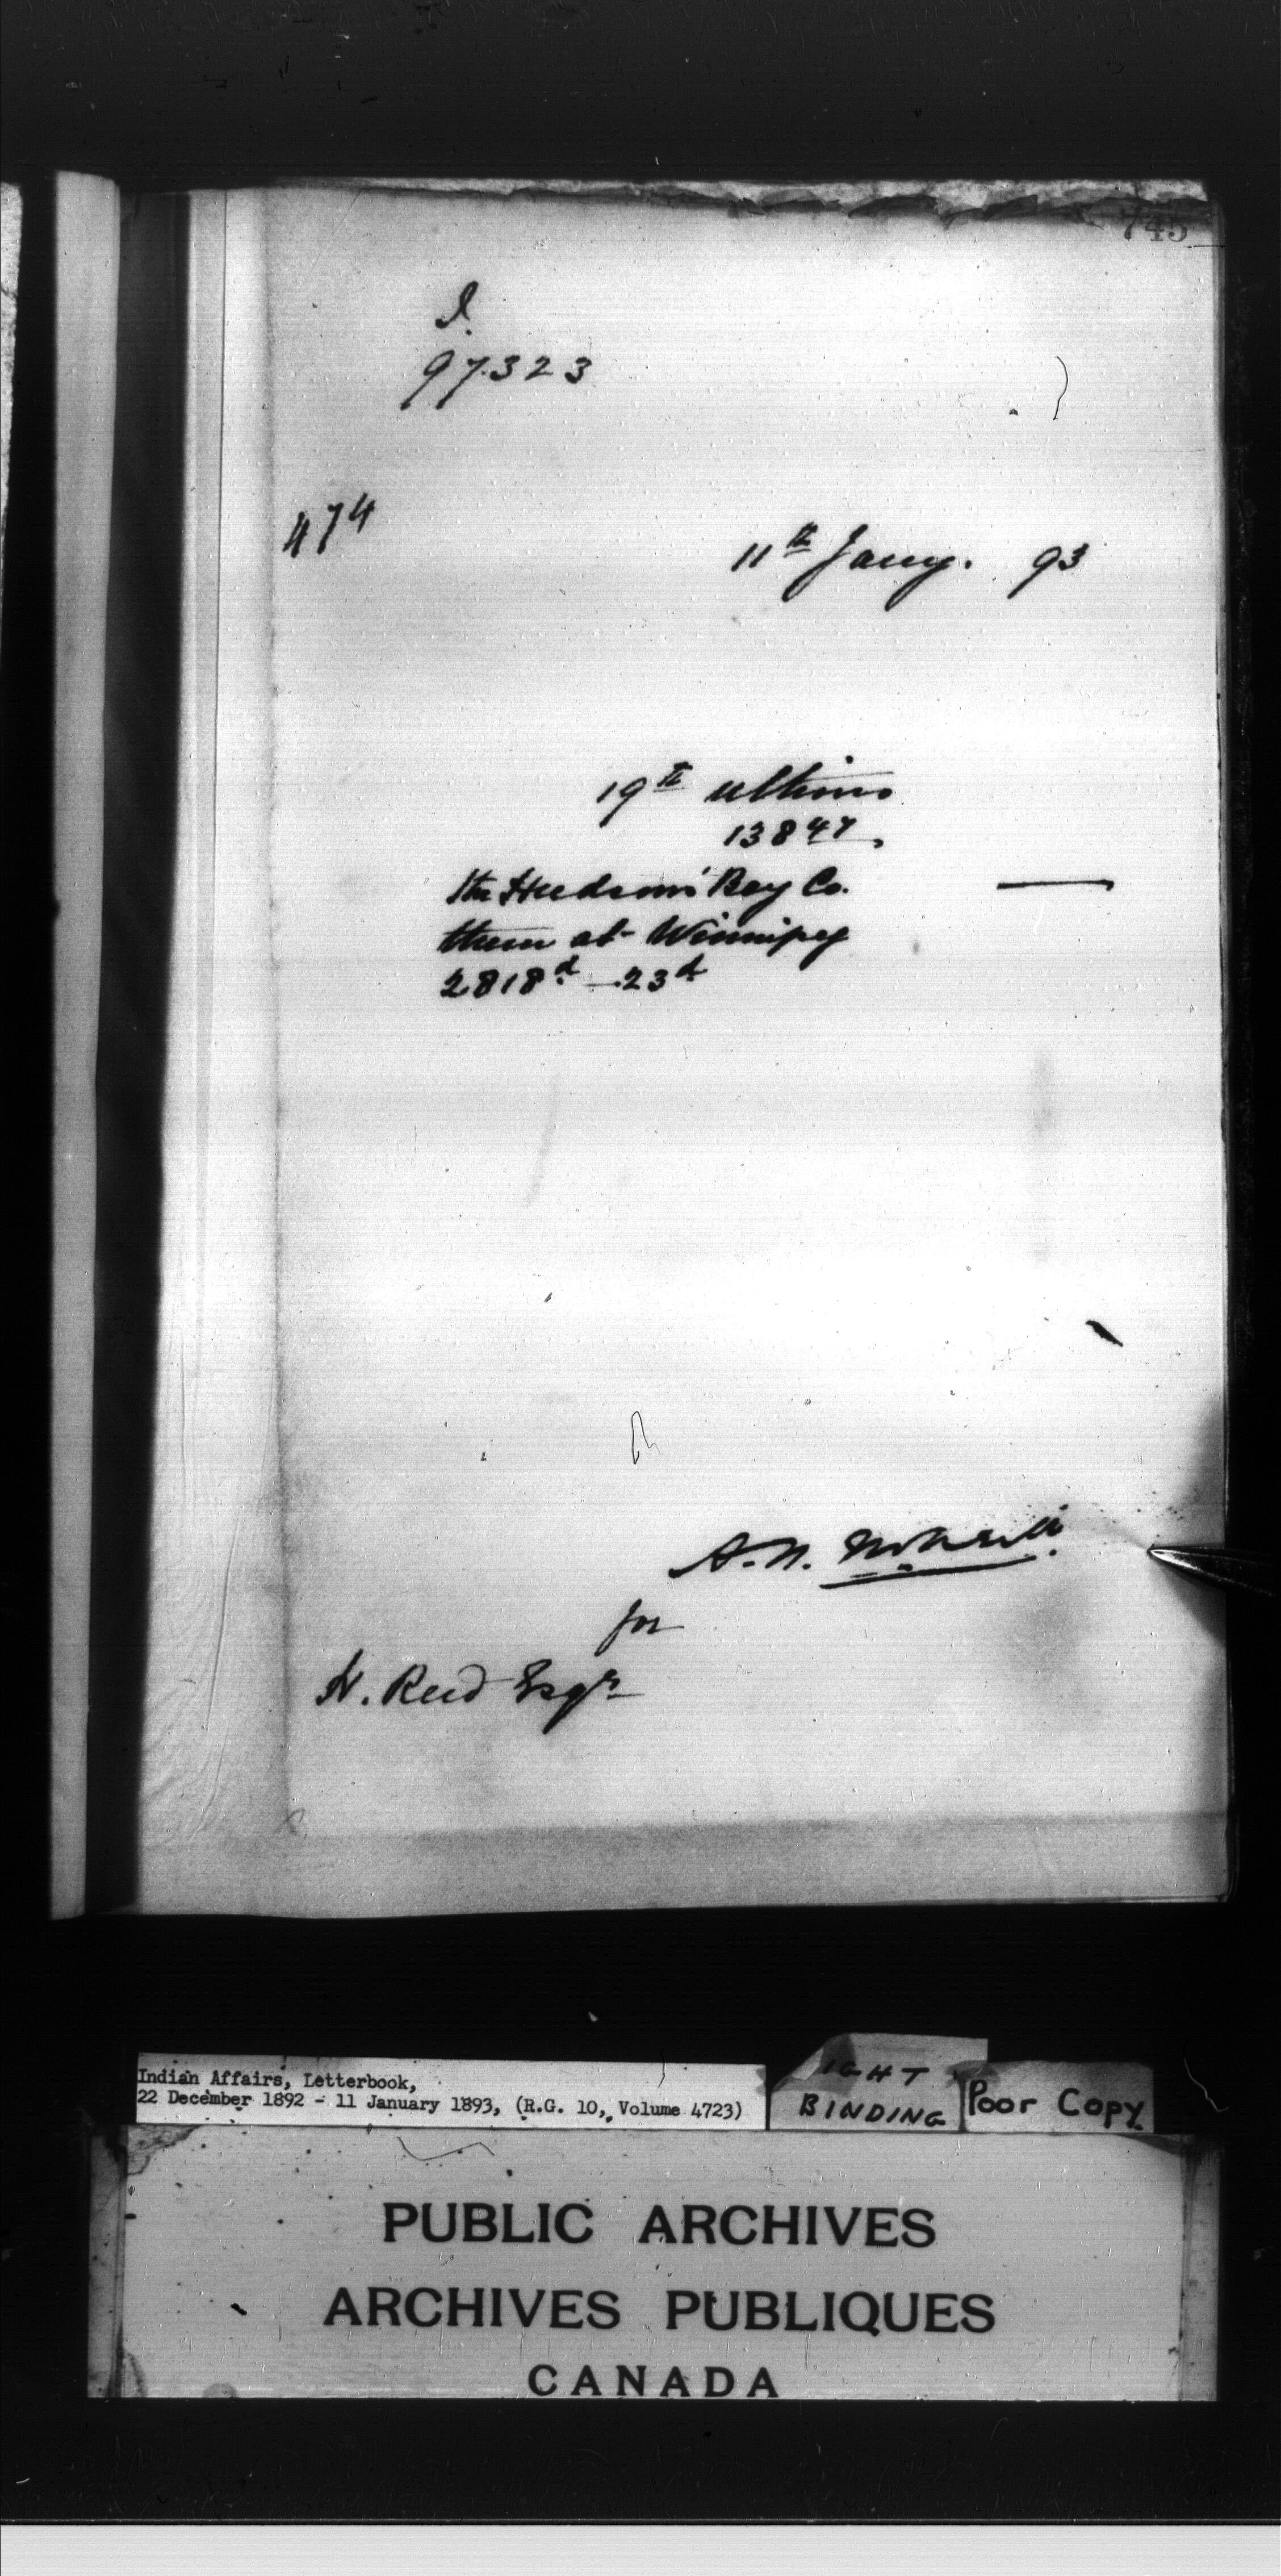 745
L.
97323
474
11th Jany. 93
19th ultimo
13847,
the Hudsons' Bay Co.
them at Winnipeg
2818d. — 23d.
A. N. McNeill.
for
H. Reed Esqr
Indian Affairs, Letterbook,
22 December 1892 - 11 January 1893, (R.G. 10, Volume 4723)
IGHT
BINDING
Poor Copy
PUBLIC ARCHIVES
ARCHIVES PUBLIQUES
CANADA